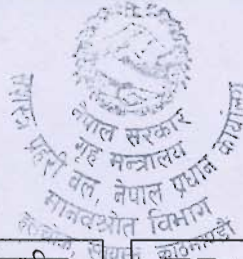 नेपाल सरकार
गृह मन्त्रालय
सशस्त्र प्रहरी बल, नेपाल प्रधान कार्यालय
मानवश्रोत विभाग
हल्चोक, स्वयम्भू, काठमाण्डौ